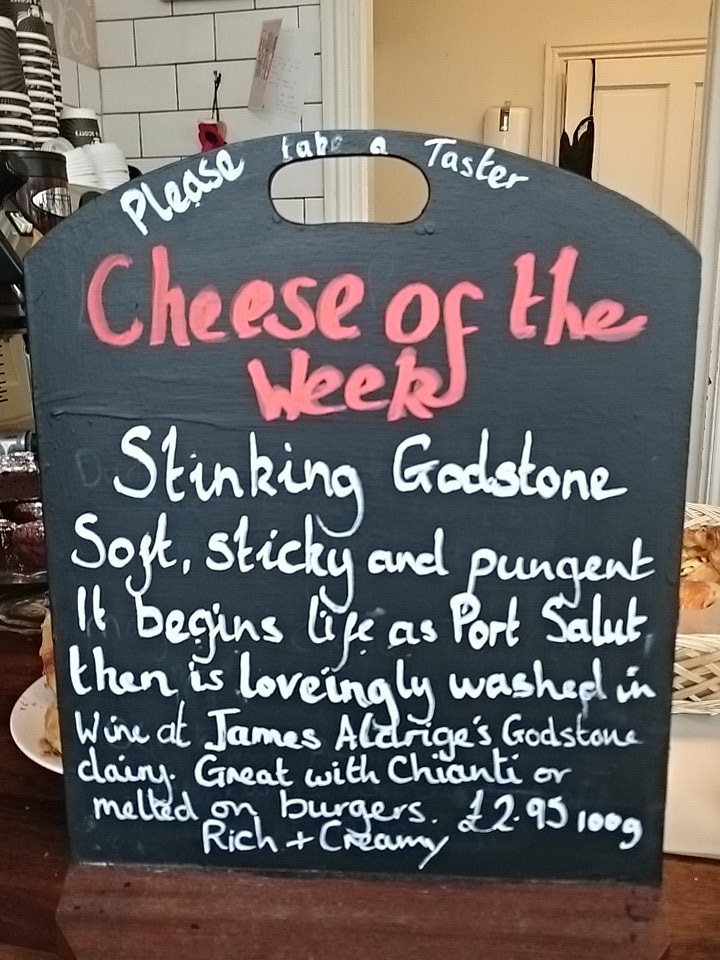 Please take a Taster
Cheese of the
Week
Stinking Godstone
Soft, sticky and pungent
It begins life as Port Salut
then is loveingly washed in
Wine at James Aldrige's Godstone
dairy. Great with Chianti or
melted on burgers. £2.95 100g
Rich + Creamy